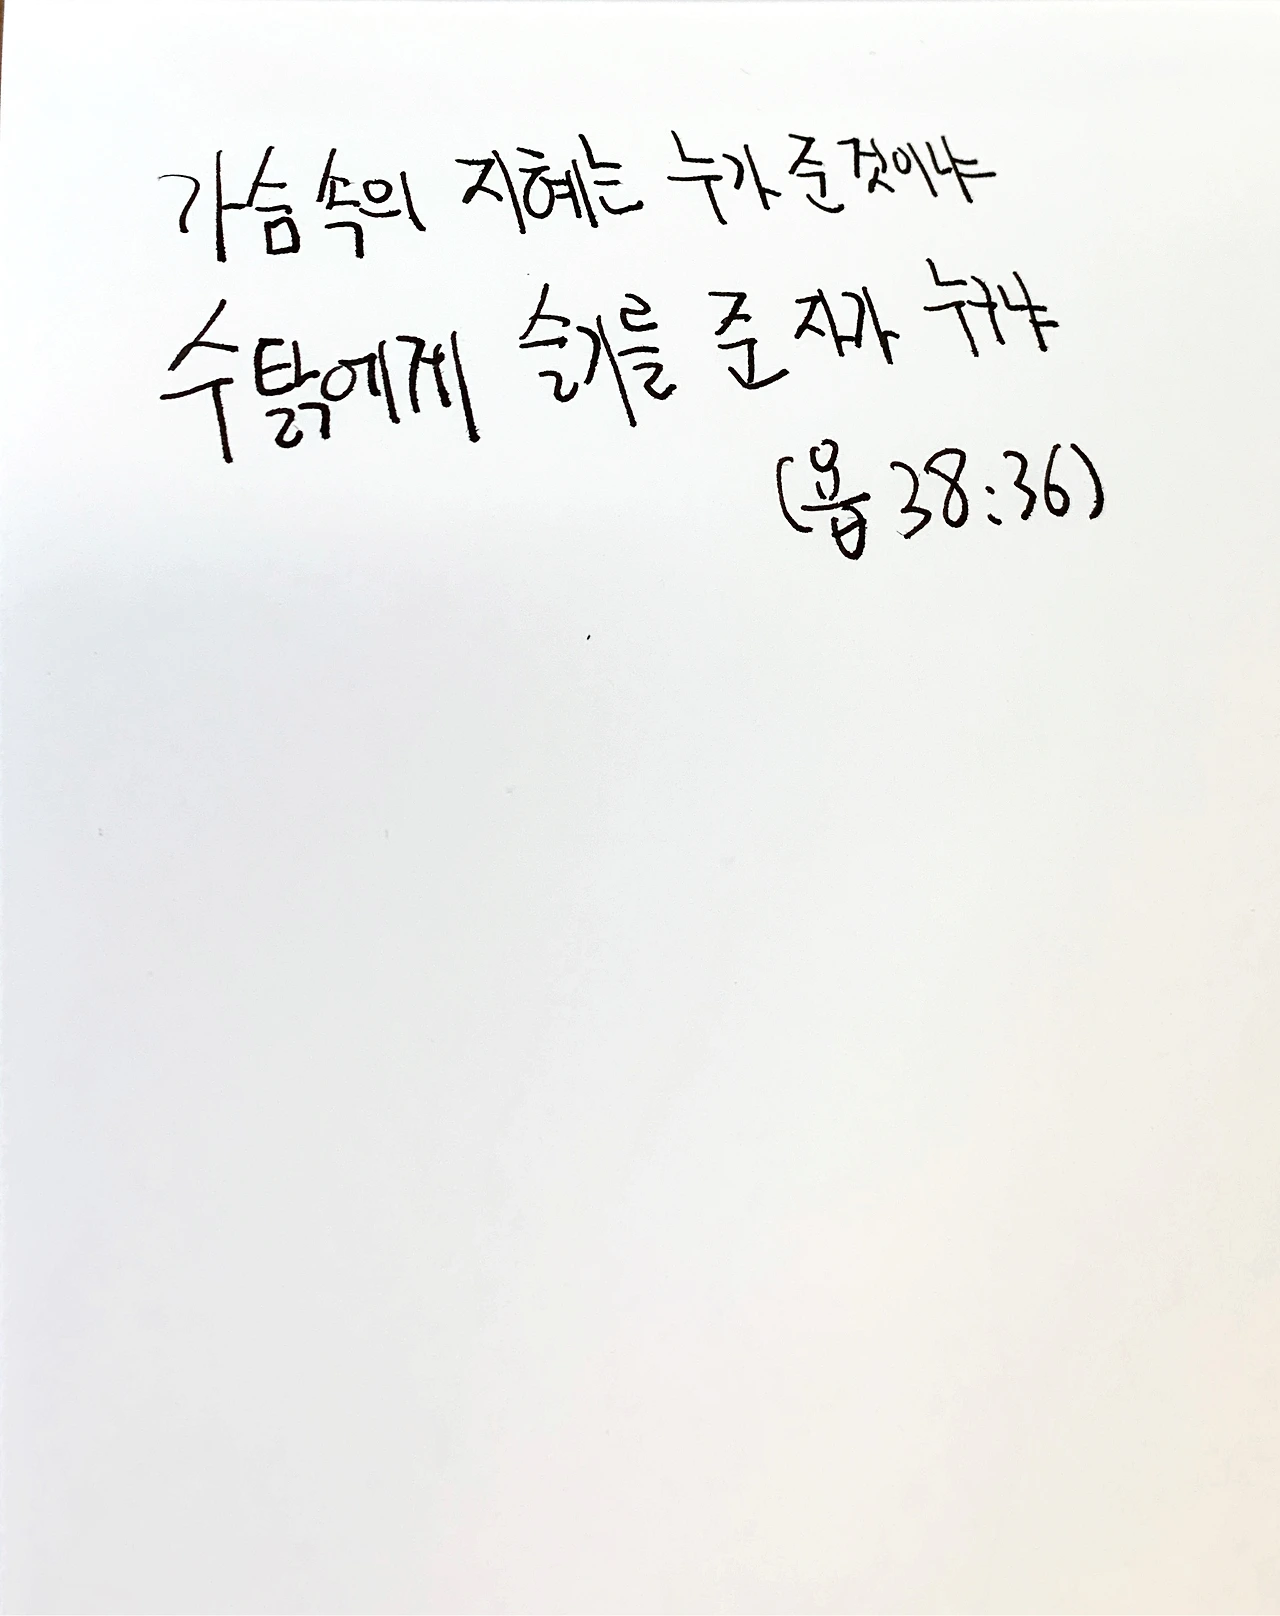 가슴속의 지혜는 누가 준 것이냐
수탉에게 슬기를 준 자가 누구냐
(욥 38:36)